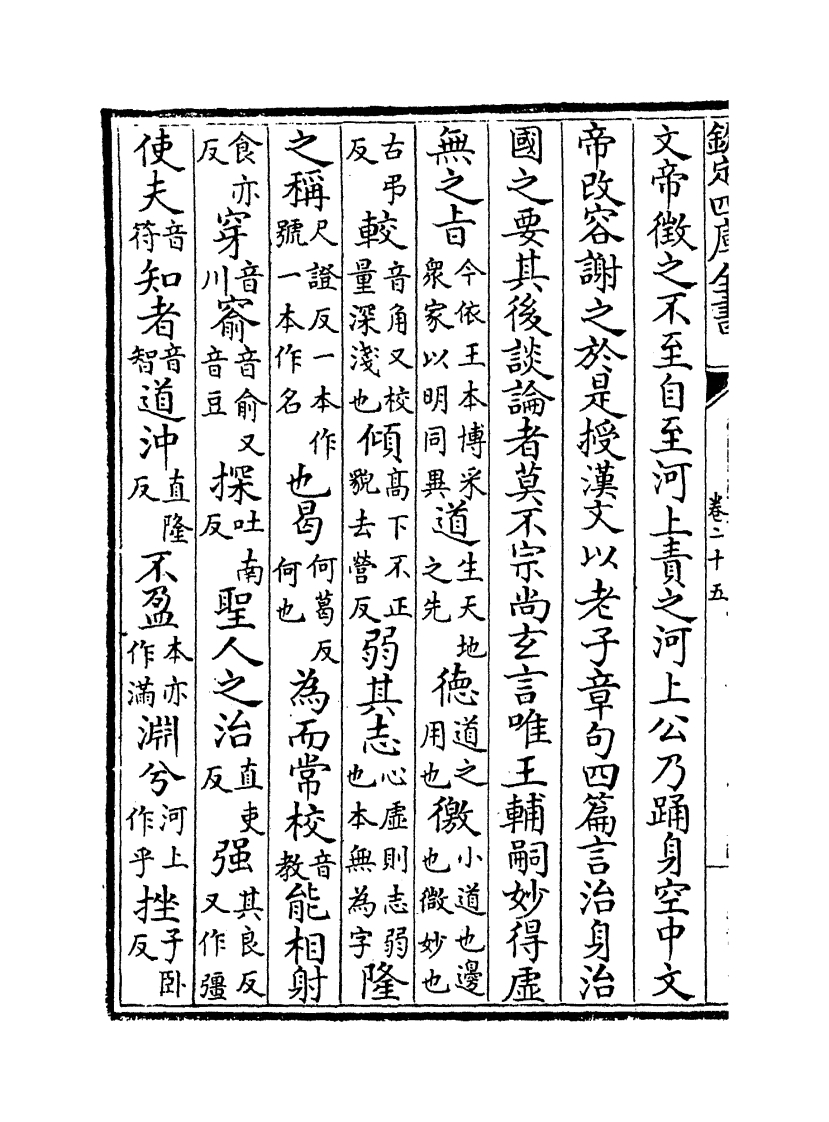 欽定四庫全書 卷二十五
文帝徵之不至自至河上責之河上公乃踊身空中文
帝改容謝之於是授漢文以老子章句四篇言治身治
國之要其後談論者莫不宗尚玄言唯王輔嗣妙得虛
無之旨今依王本博采衆家以明同異道生天地之先德道之用也徼小道也邊也微妙也
古弔反較音角又校量深淺也傾高下不正貌去營反弱其志心虛則志弱也本無為字隆
之稱尺證反一本作號一本作名也曷何葛反何也為而常校音教能相射
食亦反穿音川窬音俞又音豆探吐南反聖人之治直吏反强其良反又作彊
使夫音符知者音智道沖直隆反不盈本亦作滿淵兮河上作乎挫子臥反